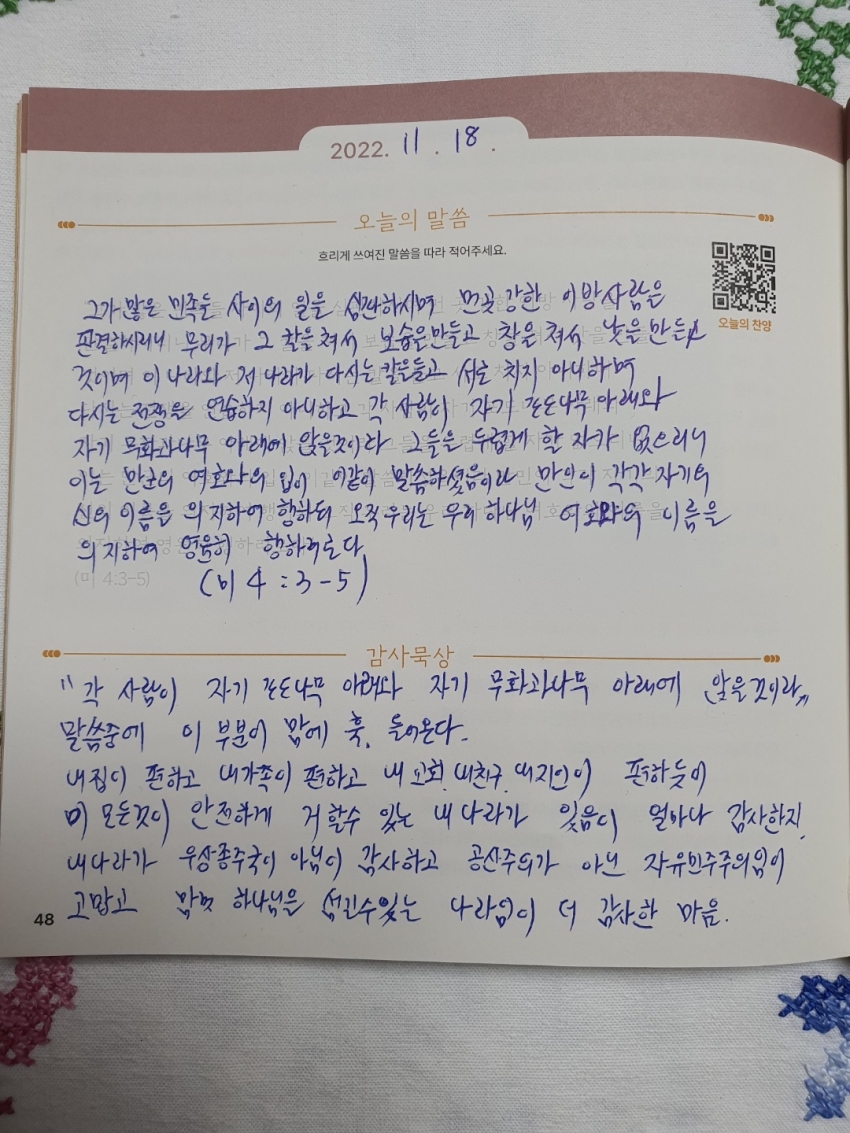 2022. 11. 18.
오늘의 말씀
흐리게 쓰여진 말씀을 따라 적어주세요.
오늘의 찬양
그가 많은 민족들 사이의 일을 심판하시며 먼곳 강한 이방사람을
판결하시리니 무리가 그 칼을 쳐서 보습을만들고 창을 쳐서 낫을 만들
것이며 이 나라와 저 나라가 다시는 칼을들고 서로 치지 아니하며
다시는 전쟁을 연습하지 아니하고 각 사람이 자기 포도나무 아래와
자기 무화과나무 아래에 앉을것이라 그들을 두렵게 할 자가 없으리니
이는 만군의 여호와의 입이 이같이 말씀하셨음이라 만민이 각각 자기의
신의 이름을 의지하여 행하되 오직 우리는 우리 하나님 여호와의 이름을
의지하여 영원히 행하리로다
(미 4:3-5)
(미 4:3-5)
감사묵상
"각 사람이 자기 포도나무 아래와 자기 무화과나무 아래에 앉을것이라"
말씀중에 이 부분이 맘에 훅, 들어온다.
내집이 편하고 내가족이 편하고 내 교회, 내친구, 내지인이 편하듯이
이 모든것이 안전하게 거할수 있는 내나라가 있음이 얼마나 감사한지,
내나라가 우상종주국이 아님이 감사하고 공산주의가 아닌 자유민주주의임이
고맙고 맘껏 하나님을 섬길수있는 나라임이 더 감사한 마음.
48